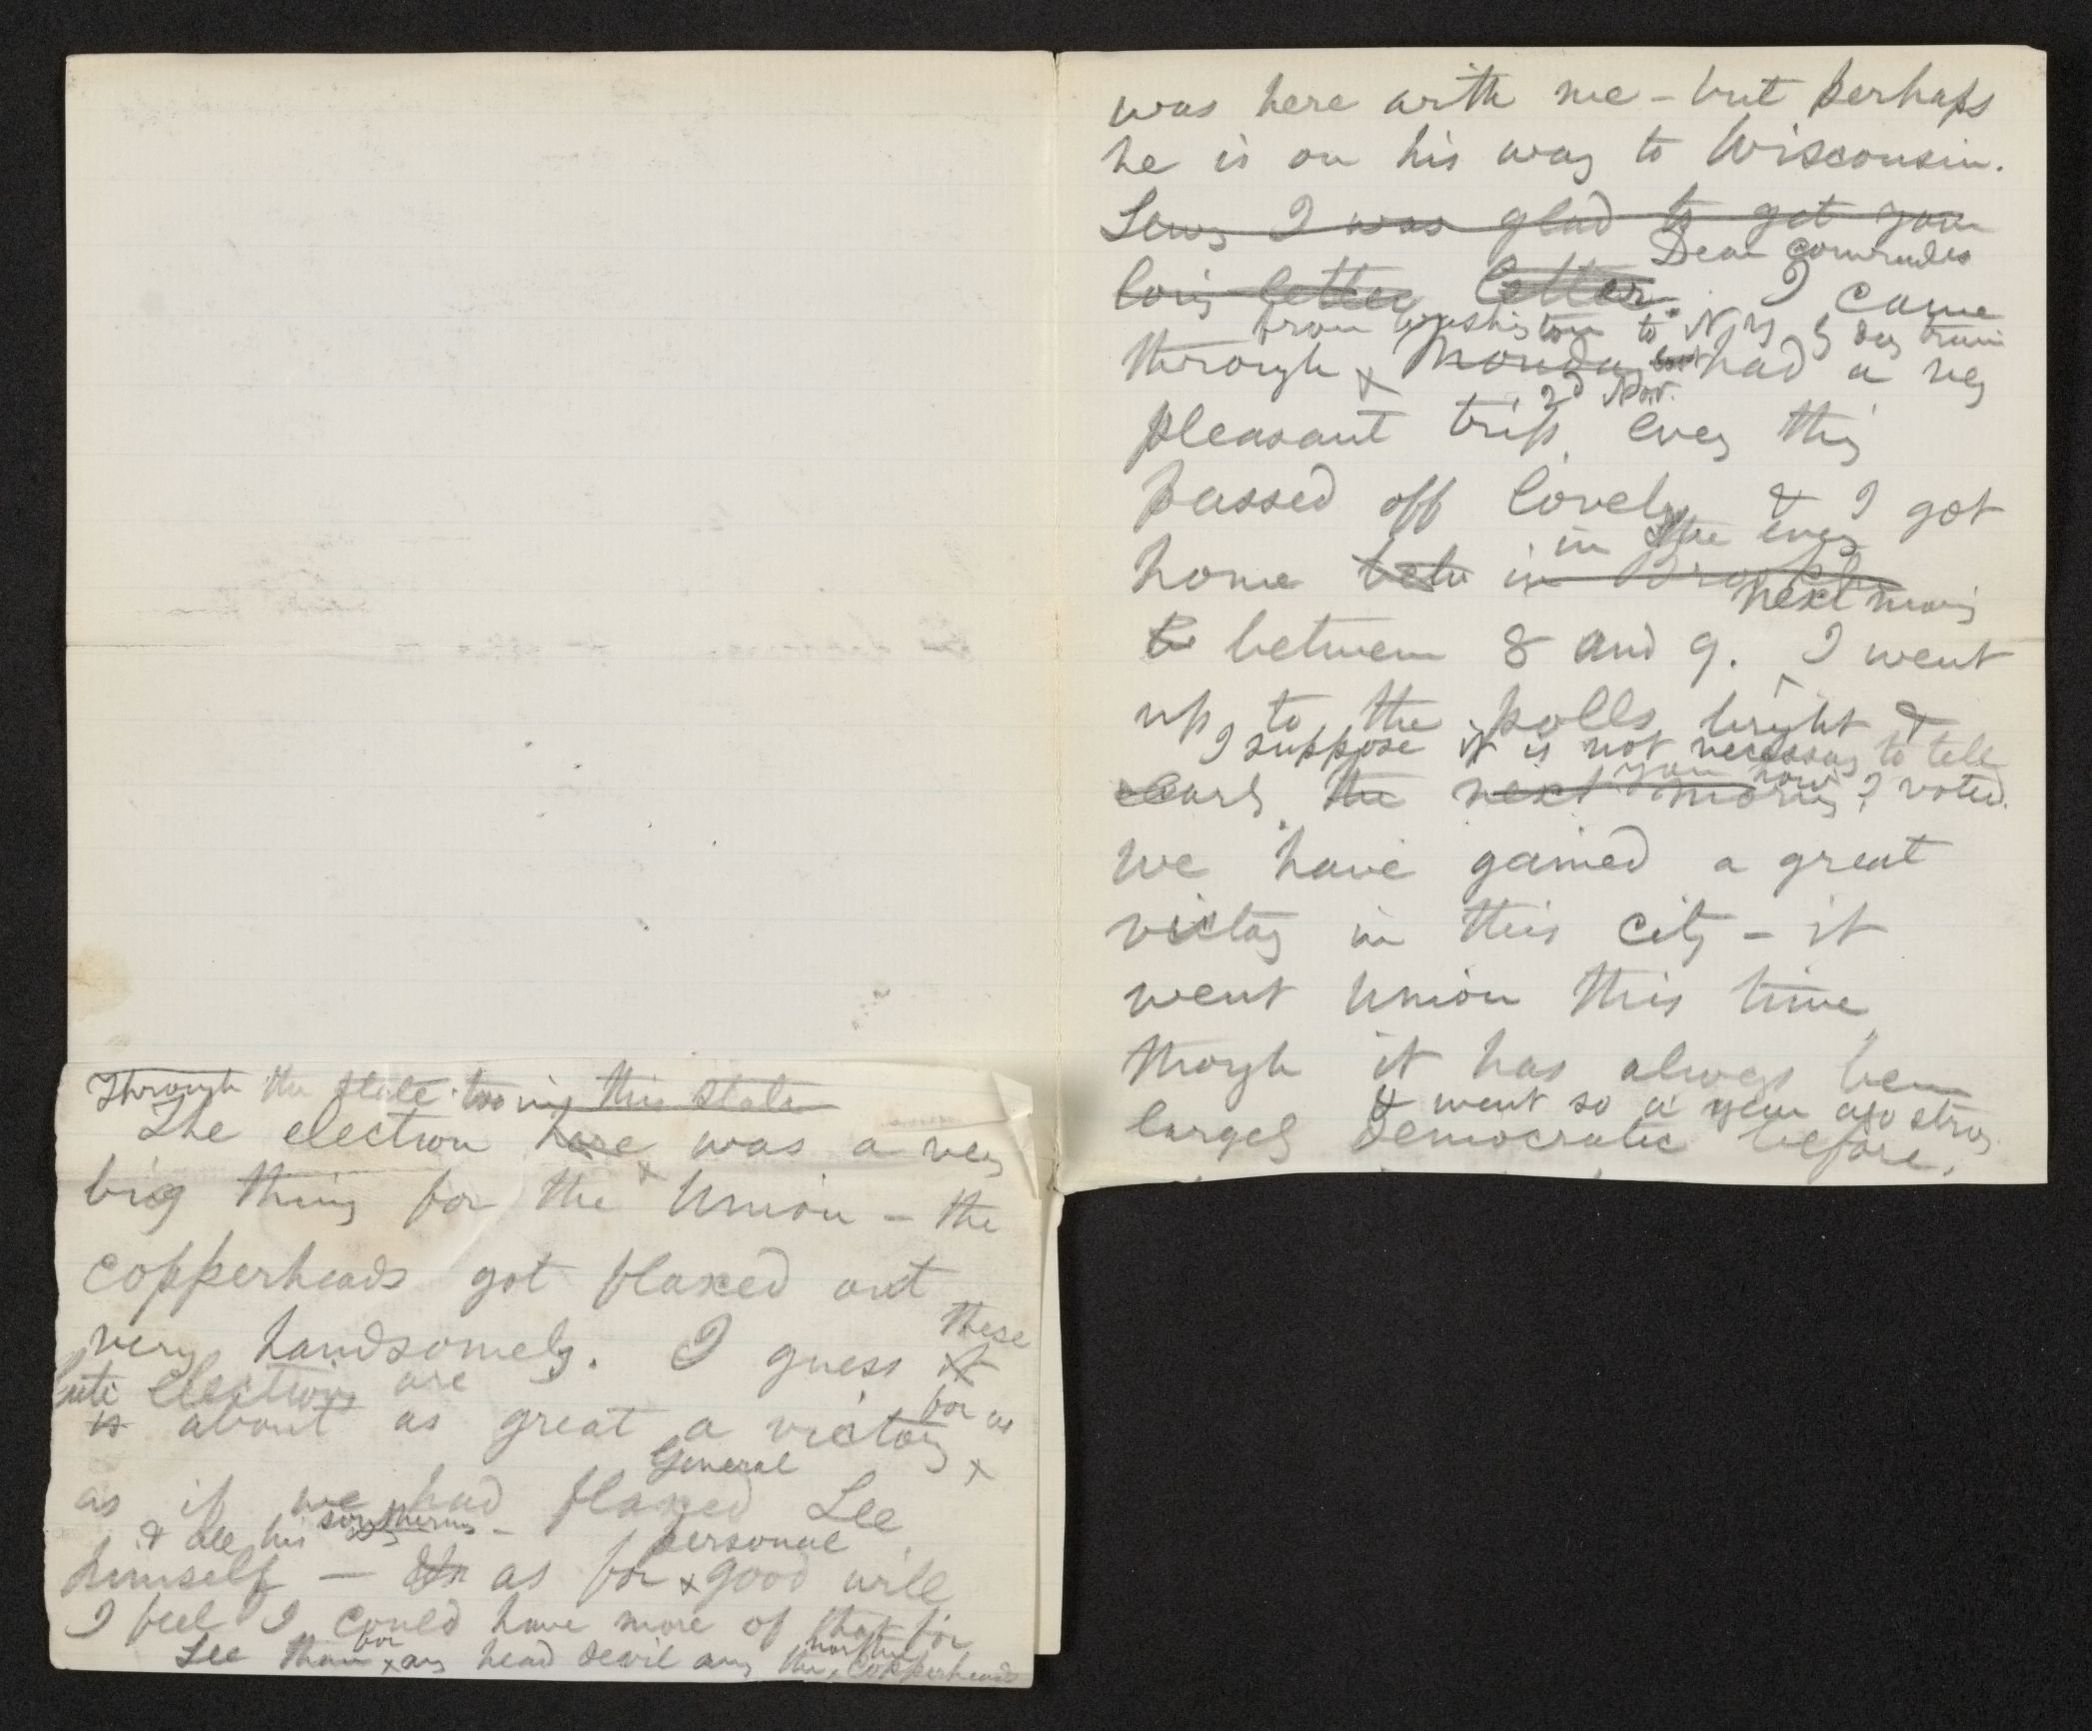 was here with me – but perhaps
he is on his way to Wisconsin.
Lewy I was glad to get your
Dear comrades
loving letter letter. I came
from Washington to N Y by day train
through Monday but had a very
2d Nov.
pleasant trip, every thing
passed off lovely & I got
in the eveg
home betw in Brooklyn
next morning
to between 8 and 9. I went
up to the polls bright &
I suppose it is not necessary to tell
you how I voted.
early the next morning
we have gained a great
victory in this city – it
went Union this time,
though it has always been
& went so a year ago strong
largely democratic before.
Through the state too in this state
The election here was a very
big thing for the Union – the
copperheads got flaxed out
these
very handsomely. I guess it
late elections are
for us
is about as great a victory
General
as if we had flaxed Lee
& all his southerners –
personal
himself – as for good will
I feel I could have more of that for
for northern
Lee than any head devil any the copperheads